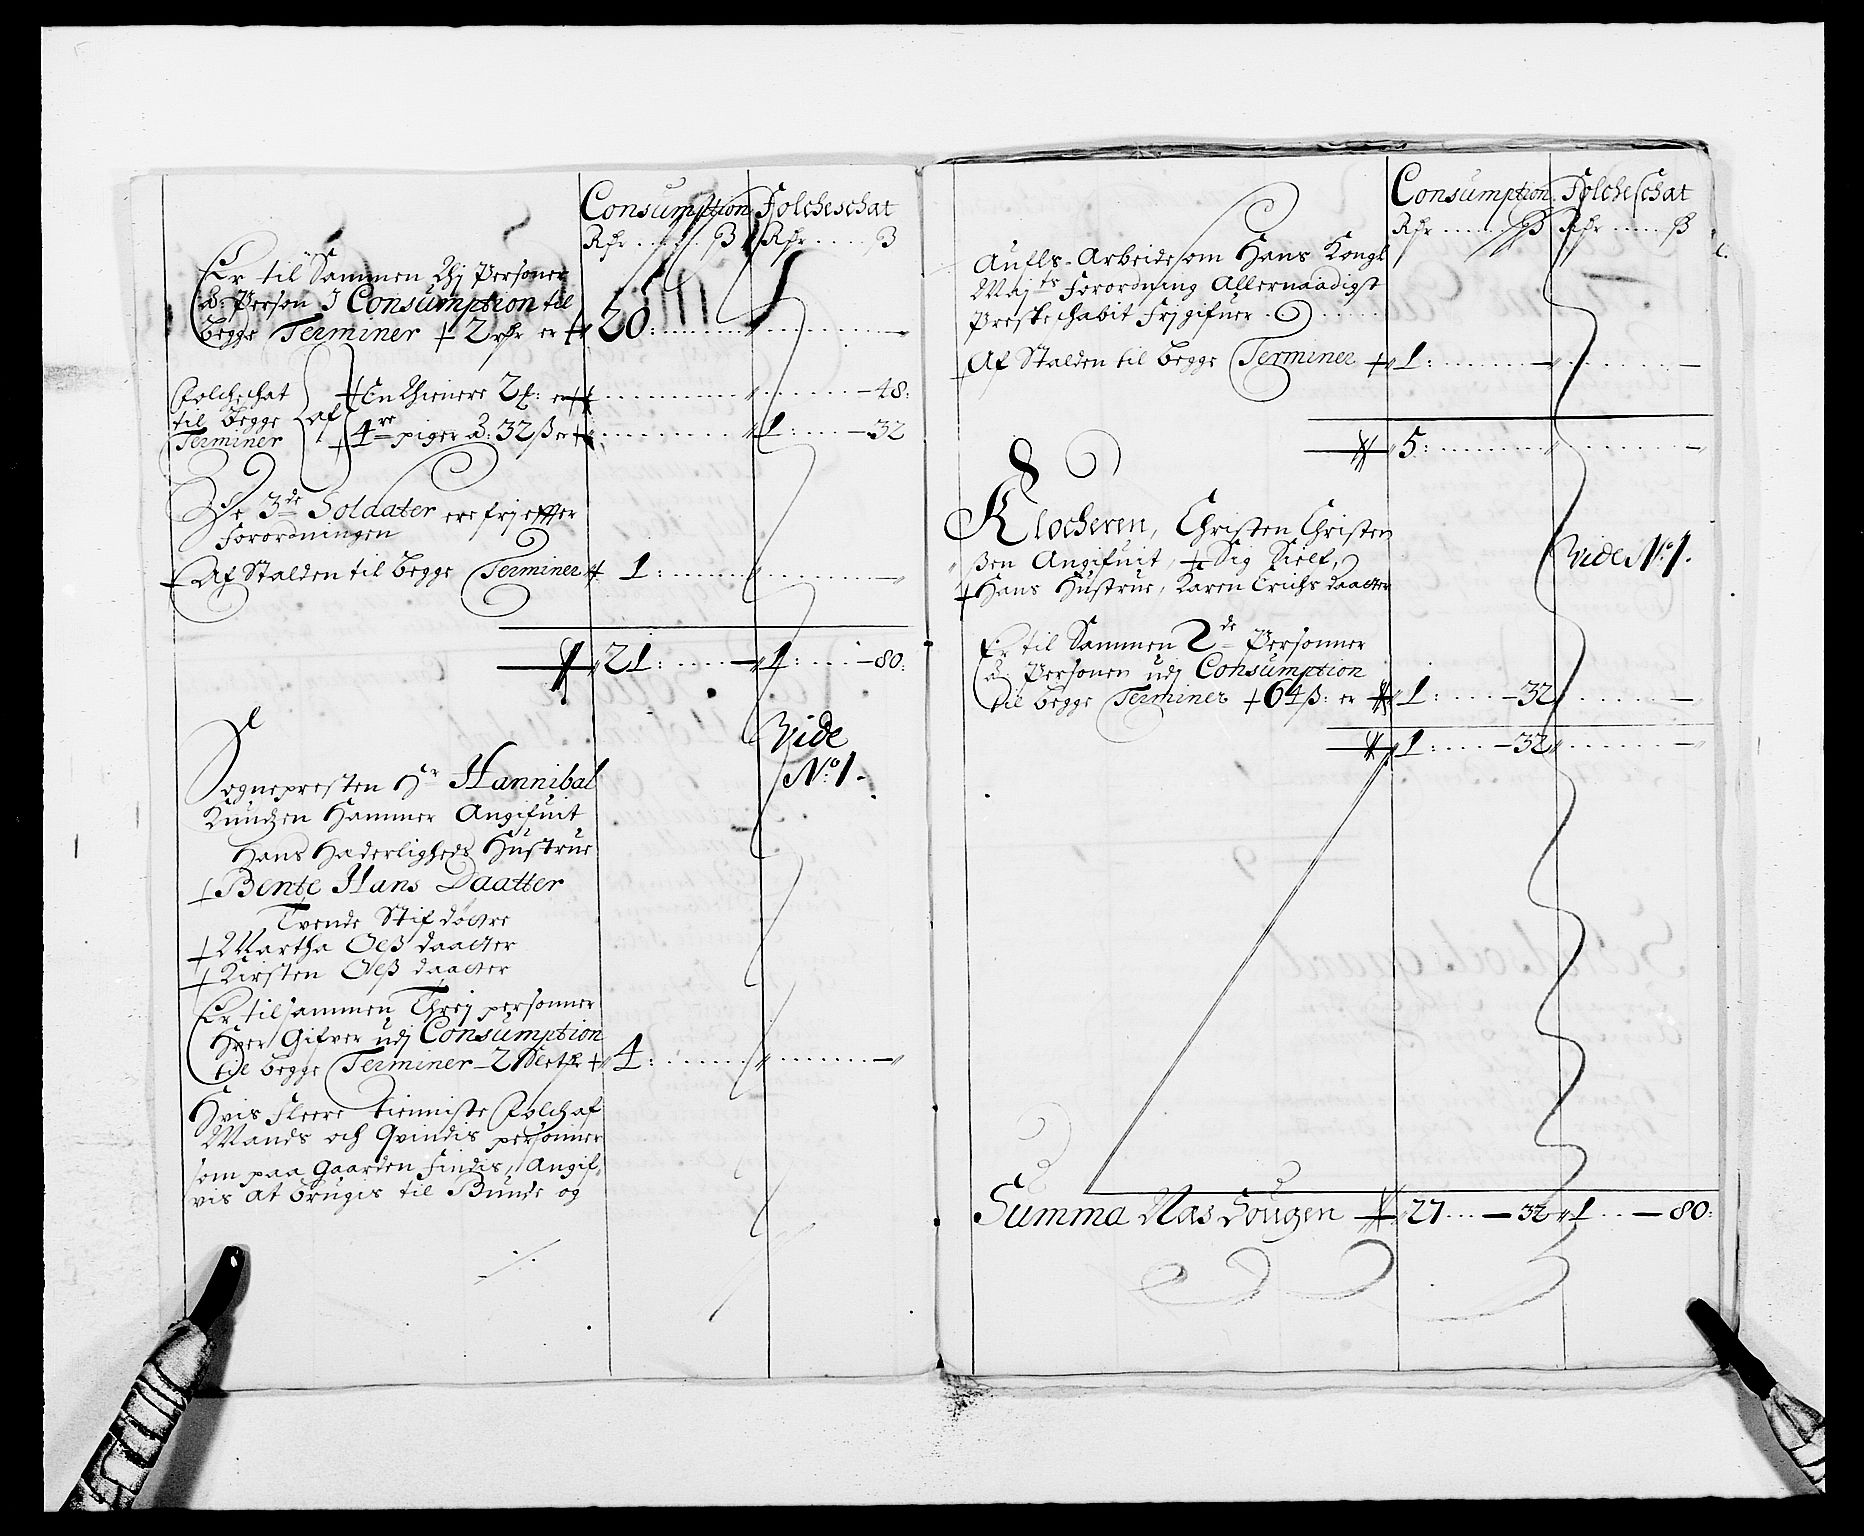 Consumption Folcheschat
Rdr ..... β Rdr ..... β
Er til Sammen Thj Personer
â Person J Consumption til
begge Terminer + 2 rdr er + 20: ........
Folcheschat
til begge af
Terminer
+ En Thienere 2 : er ........ 48:
+ 4re piger â 32 β er ........ 1: ..... 32
De 3de Soldater ere frj effter
Forordningen
+ Af Stalden til begge Terminer + 1: ........
21: ..... 1: ..... 80:
Vide
No 1.
Sognepresten Hr Hannibal
Knudzen Hammer Angifuit
Hans Hæderligheds Hustrue
+ Bente Hans Daatter
Tvende Stif døttre
+ Martha Olβ daatter
+ Kirsten Olβ daatter
Er tilsammen Threj personner
Hver Gifver udj Consumption
til begge Terminer 4: ........
Hvis Fleere tienniste Folch af
Mands och Qvindis personner
som paa Gaarden findis, Angif-
vis at brugis til Bunde og
Consumption Folcheschat
Rdr ..... β Rdr ..... β
Aufls-Arbeide som Hans Kongl
Majts Forordning Allernaadigst
Frjgifuer
+ Af Stalden til begge Terminer + 1: ........
5: ........
Klocheren, Christen Christen
βen Angifuit, + Sig Sielf,
+ Hans Hustrue, Karen Erichs daatter
Vide No 1.
Er til Sammen 2de Personner
â Personen udj Consumption
til begge Terminer + 64 β: er 1: ..... 32
1: ..... 32
Summa Nas Sougen 27 ... 32 1 ... 80: